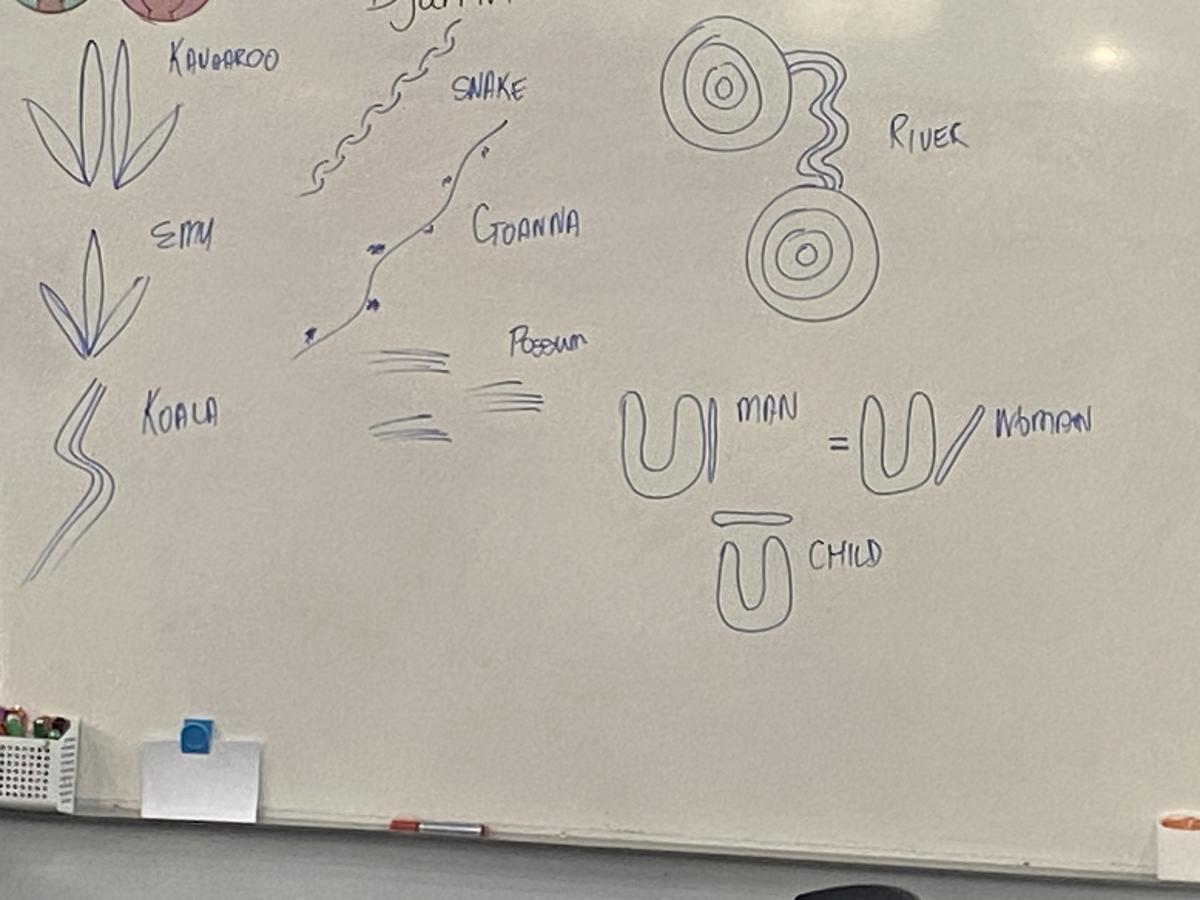 KANGAROO
SNAKE
RIVER
EMU
GOANNA
POSSUM
KOALA
MAN
=
WOMAN
CHILD